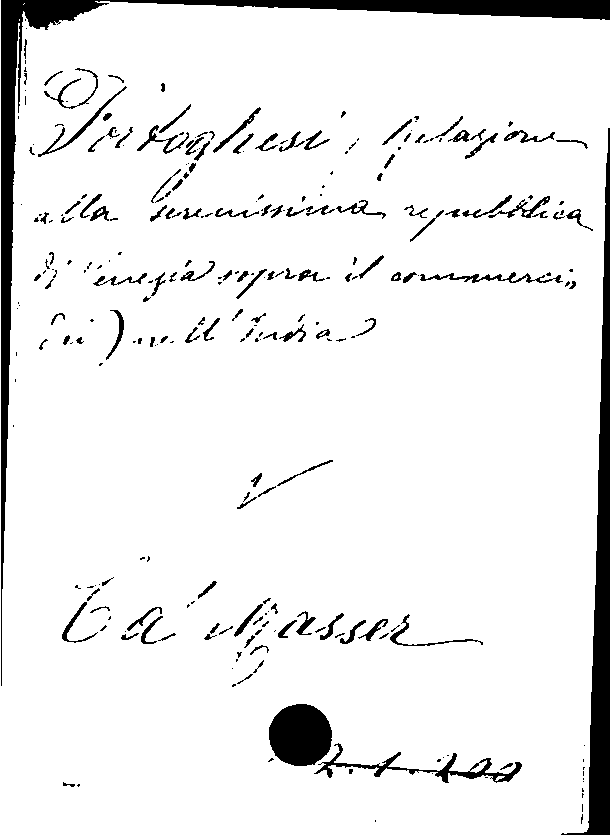 Portoghesi, Relazione
alla serenissima repubblica
di Venezia sopra il commercio
dei) nell' India
V
Ca' Masser
2.1.200